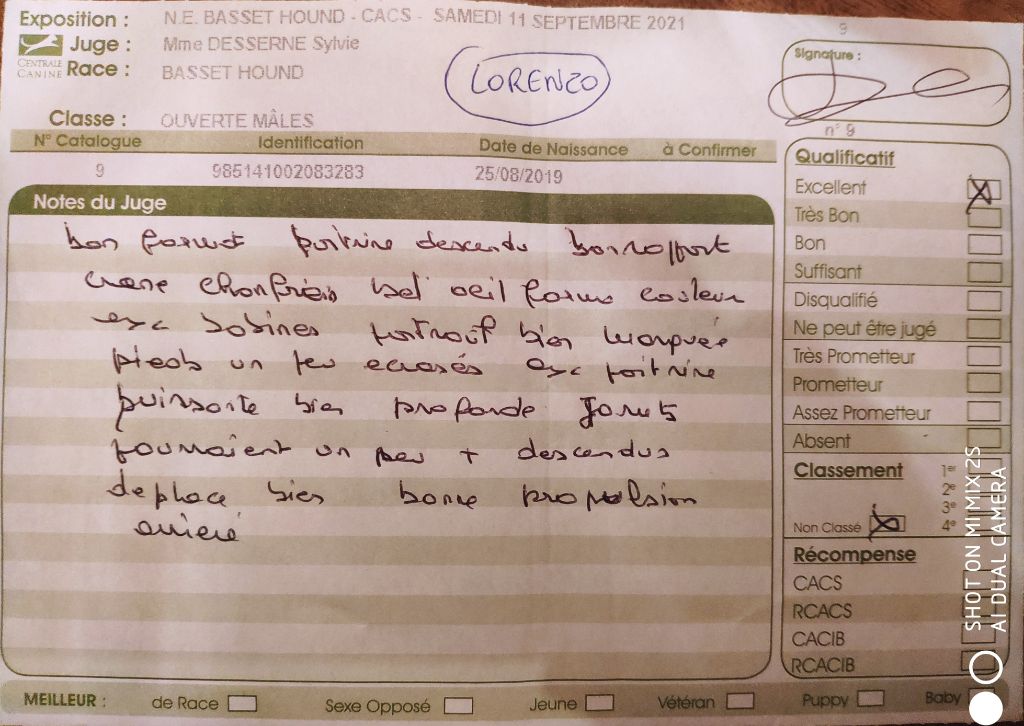 Exposition : N.E. BASSET HOUND - CACS - SAMEDI 11 SEPTEMBRE 2021
Juge : Mme DESSERNE Sylvie
CENTRALE CANINE
Race : BASSET HOUND
LORENZO
Classe : OUVERTE MÂLES
9
Signature :
n° 9
N° Catalogue Identification Date de Naissance à Confirmer
9 985141002083283 25/08/2019
Notes du Juge
bon format poitrine descendu bon rapport
crane chanfrein bel oeil forme couleur
exc babines portrait bien marquée
pieds un peu ecrasés exc poitrine
puissante bien profonde Jarrets
pourraient un peu + descendus
deplace bien bonne propulsion
arrieré
Qualificatif
Excellent
Très Bon
Bon
Suffisant
Disqualifié
Ne peut être jugé
Très Prometteur
Prometteur
Assez Prometteur
Absent
Classement 1er
2e
3e
Non Classé 4e
Récompense
CACS
RCACS
CACIB
RCACIB
MEILLEUR : de Race Sexe Opposé Jeune Vétéran Puppy Baby
SHOT ON MI MIX 2S
AI DUAL CAMERA